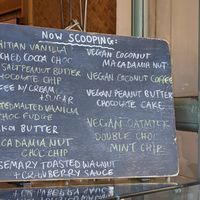 NOW SCOOPING:
HITIAN VANILLA
CHED COCOA CHOC
SALT PEANUT BUTTER
CHOCOLATE CHIP
FEE W/ CREAM
+ SUGAR
TED MALTED VANILLA
CHOC FUDGE
KOI BUTTER
CADAMIA NUT
CHOC CHIP
SEMARY TOASTED WALNUT
+ CRANBERRY SAUCE
VEGAN COCONUT
MACADAMIA NUT
VEGAN COCONUT COFFEE
VEGAN PEANUT BUTTER
CHOCOLATE CAKE
VEGAN OATMILK
DOUBLE CHOC
MINT CHIP